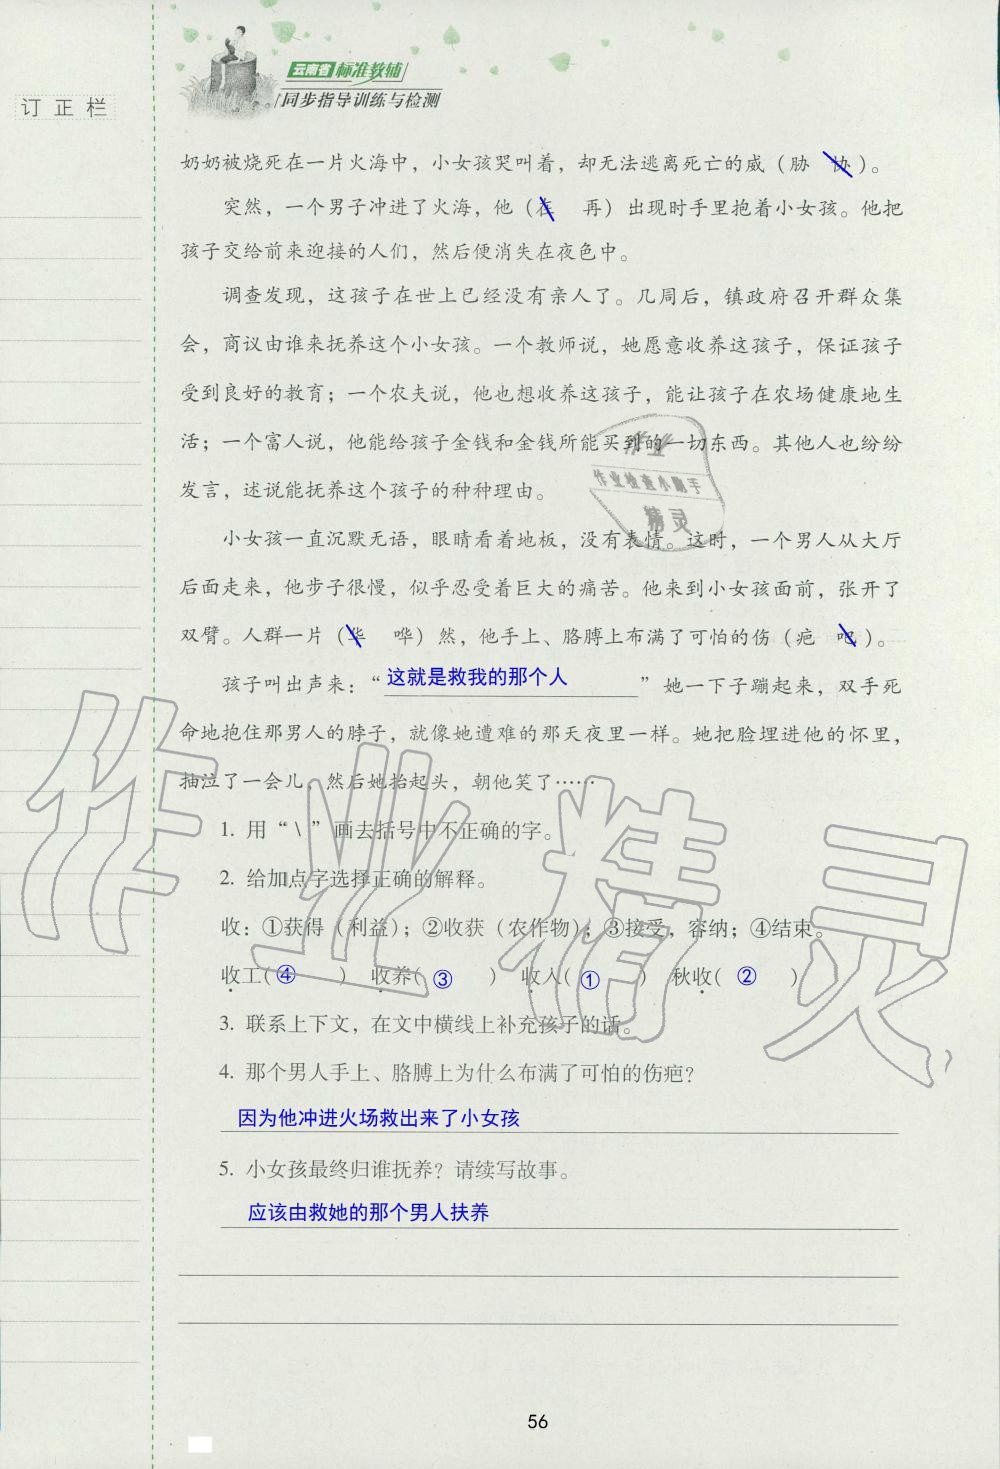 云南省标准教辅
同步指导训练与检测
订正栏
奶奶被烧死在一片火海中，小女孩哭叫着，却无法逃离死亡的威（胁 协）。
突然，一个男子冲进了火海，他（在 再）出现时手里抱着小女孩。他把
孩子交给前来迎接的人们，然后便消失在夜色中。
调查发现，这孩子在世上已经没有亲人了。几周后，镇政府召开群众集
会，商议由谁来抚养这个小女孩。一个教师说，她愿意收养这孩子，保证孩子
受到良好的教育；一个农夫说，他也想收养这孩子，能让孩子在农场健康地生
活；一个富人说，他能给孩子金钱和金钱所能买到的一切东西。其他人也纷纷
发言，述说能抚养这个孩子的种种理由。
小女孩一直沉默无语，眼睛看着地板，没有表情。这时，一个男人从大厅
后面走来，他步子很慢，似乎忍受着巨大的痛苦。他来到小女孩面前，张开了
双臂。人群一片（华 哗）然，他手上、胳膊上布满了可怕的伤（疤 吧）。
孩子叫出声来：“这就是救我的那个人”她一下子蹦起来，双手死
命地抱住那男人的脖子，就像她遭难的那天夜里一样。她把脸埋进他的怀里，
抽泣了一会儿，然后她抬起头，朝他笑了……
1. 用“\”画去括号中不正确的字。
2. 给加点字选择正确的解释。
收：①获得（利益）；②收获（农作物）；③接受，容纳；④结束。
收工(④) 收养(③) 收入(①) 秋收(②)
3. 联系上下文，在文中横线上补充孩子的话。
4. 那个男人手上、胳膊上为什么布满了可怕的伤疤？
因为他冲进火场救出来了小女孩
5. 小女孩最终归谁抚养？请续写故事。
应该由救她的那个男人扶养
56
作业
作业检查小助手
精灵
作业精灵